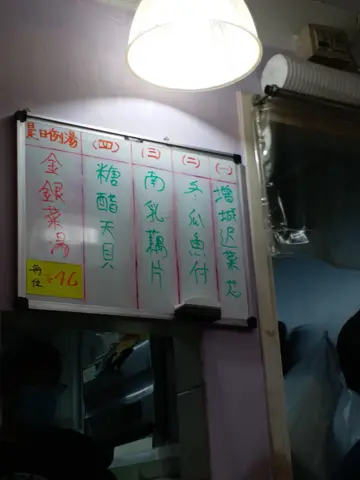 (一)
增城迟菜芯
(二)
冬瓜魚付
(三)
南乳藕片
(四)
糖醋天貝
是日例湯
金銀菜湯
每位
16